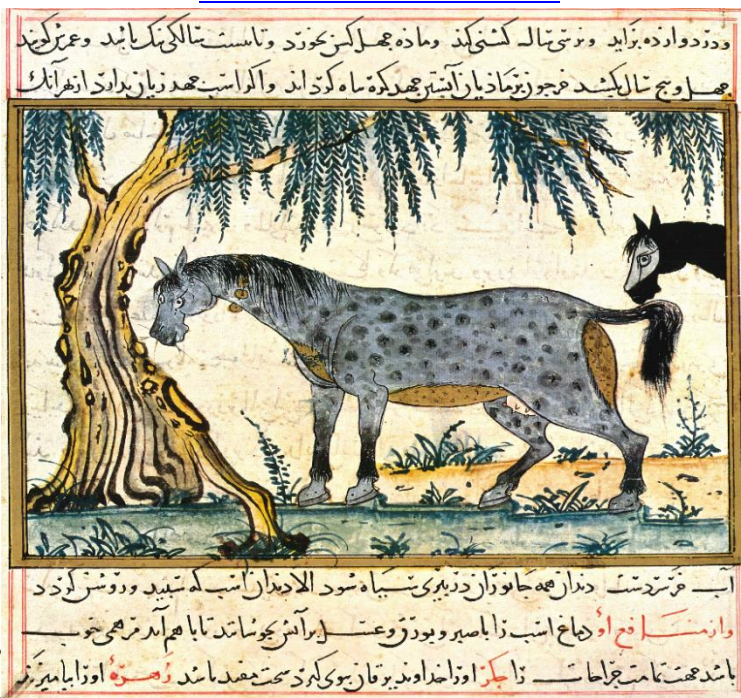 بزاید و ساله کشنی کند و ماده چهل بخورد و تا بیست سالکی نیک باشد و عمرش کویند
چهل و پنج سال بکشد چون بر مادیان آبستن جهد کره واکر اسب جهد زیان ندارد از بهر آنک
آب خر سردست دندان همه جانوران در پیری سیاه شود الا دندان اسب که سپید و روشن کردد
واز منافع او دماغ اسب را با صبر و بورق و عسل بر آتش بجوشانند تا با هم آید مرهمی خوب
باشد جهت تمامت جراحات را جکر او را خداوند یرقان بوی کیرد سخت مفید باشد زهرهٔ او را بیامیزند